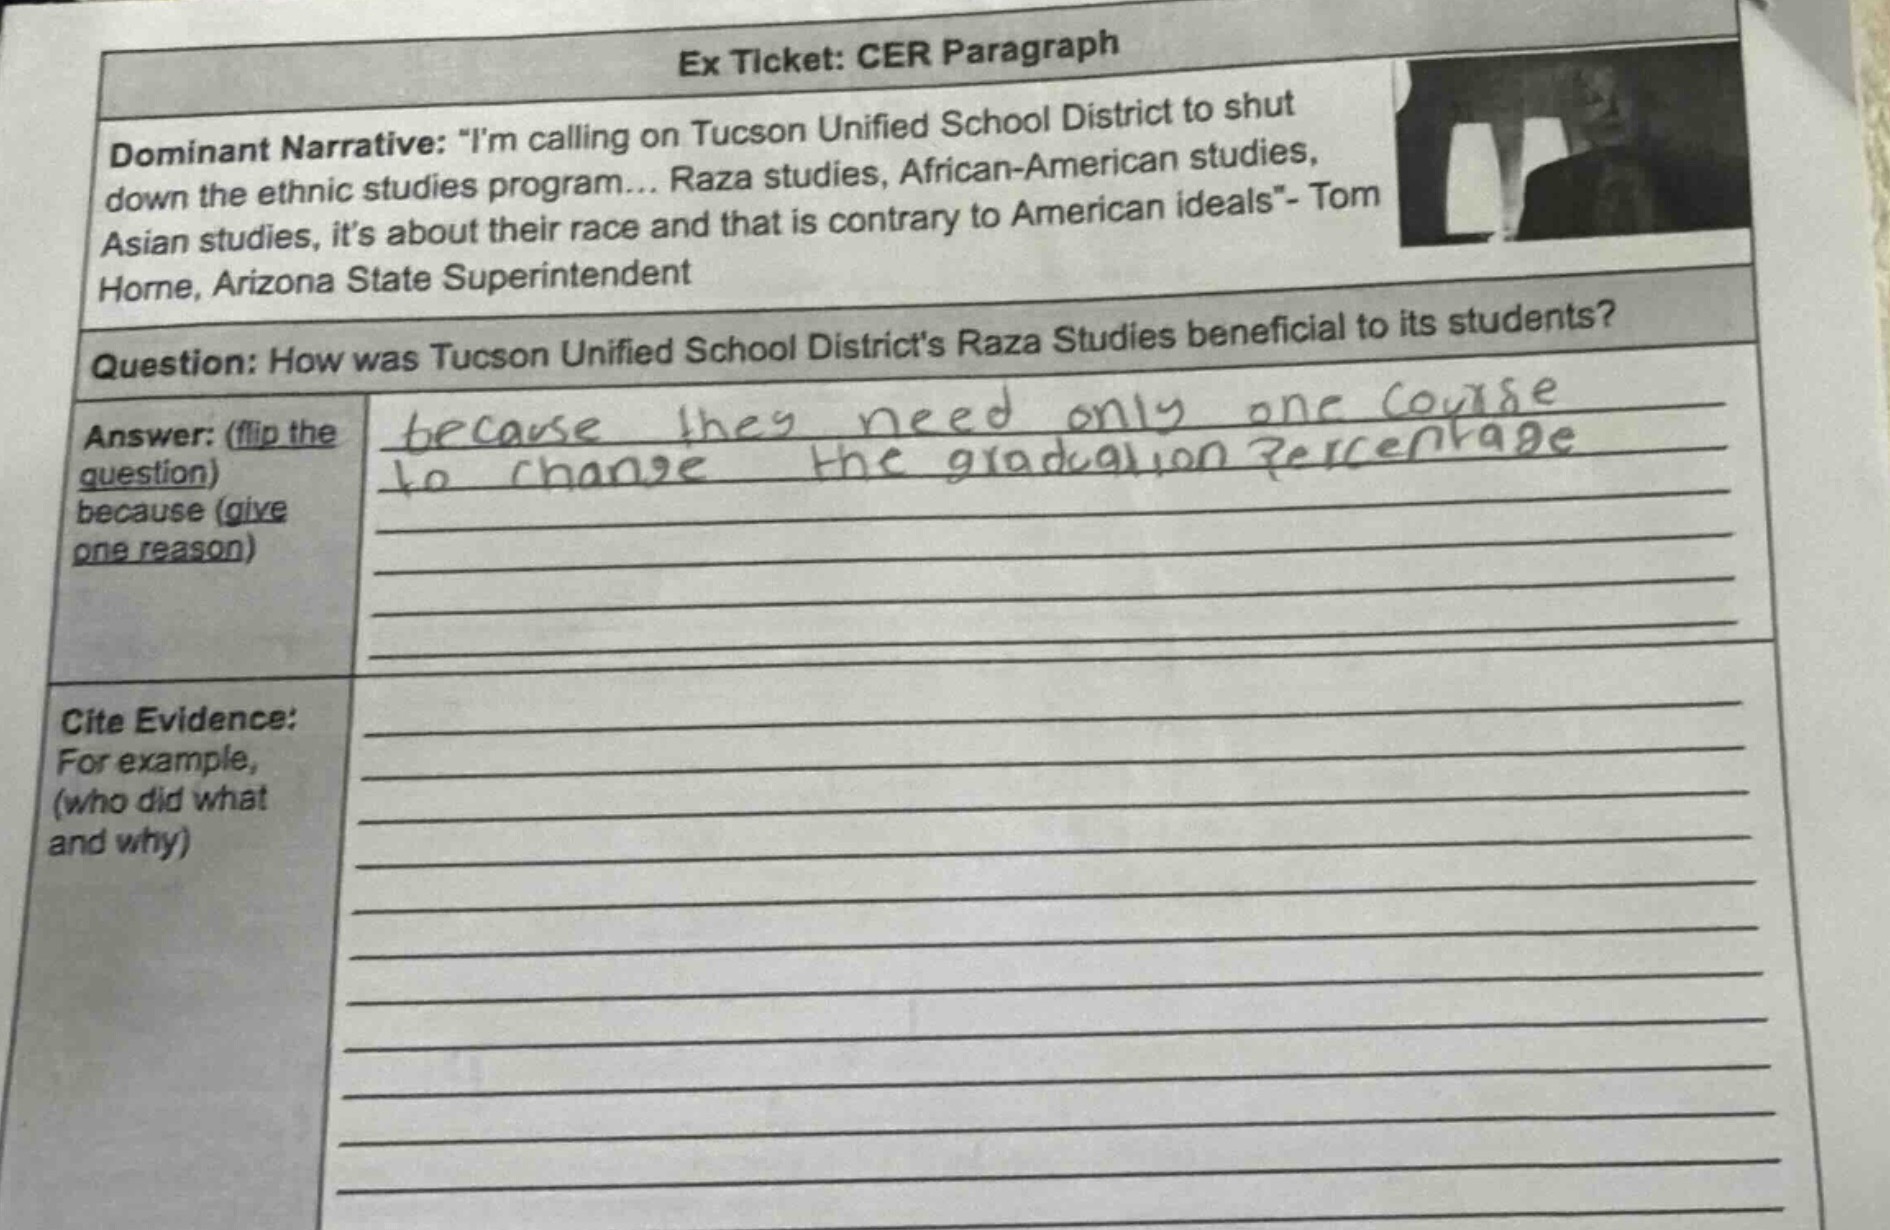 Ex Ticket: CER Paragraph
Dominant Narrative: "I'm calling on Tucson Unified School District to shut
down the ethnic studies program... Raza studies, African-American studies,
Asian studies, it's about their race and that is contrary to American ideals"- Tom
Horne, Arizona State Superintendent
Question: How was Tucson Unified School District's Raza Studies beneficial to its students?
Answer: (flip the
question)
because (give
one reason)
because they need only one course
to change the graduation Percentage
Cite Evidence:
For example,
(who did what
and why)